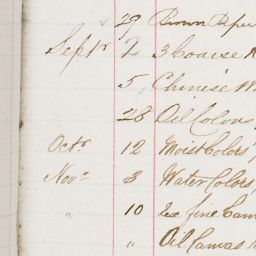 29 Brown Paper
Septr 2 3 Coarse
5 Chinese
28 Oil Colours,
Octr 12 Moist Colors
Novr 3 Water Colors,
" 10 Ex fine Cam
" Oil Canvas